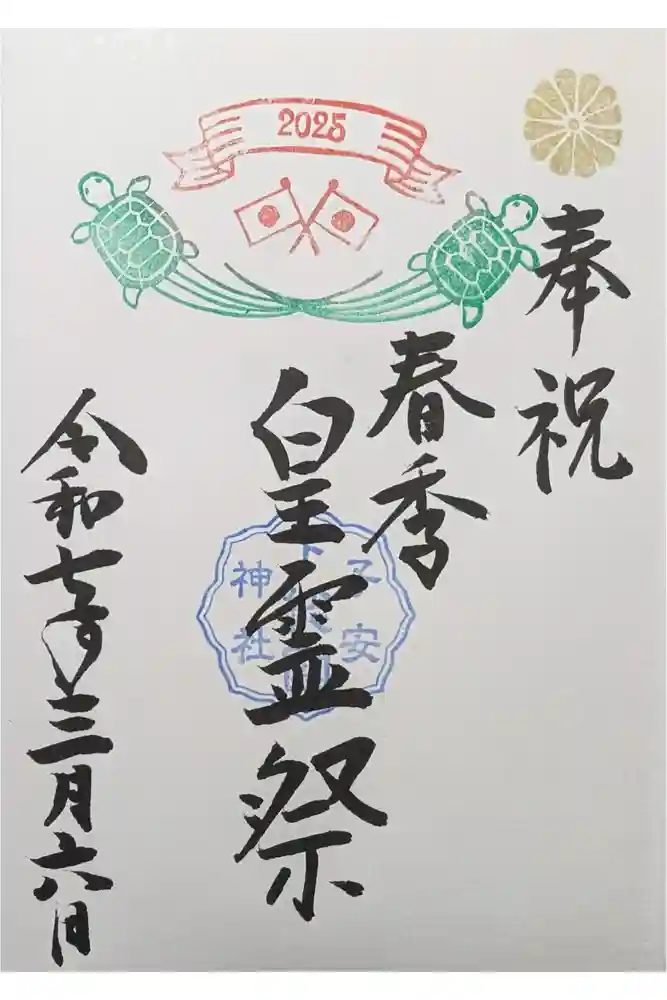 2025
奉祝
春季
皇霊祭
子安
神社
令和七年三月六日